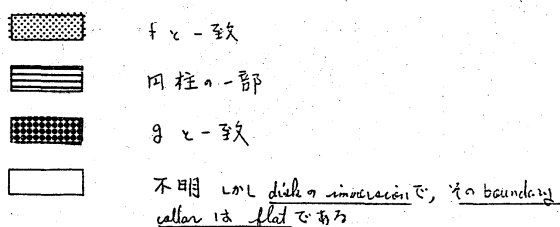 fと一致
円柱の一部
gと一致
不明 しかし diskの immersionで, その boundary
collar は flat である